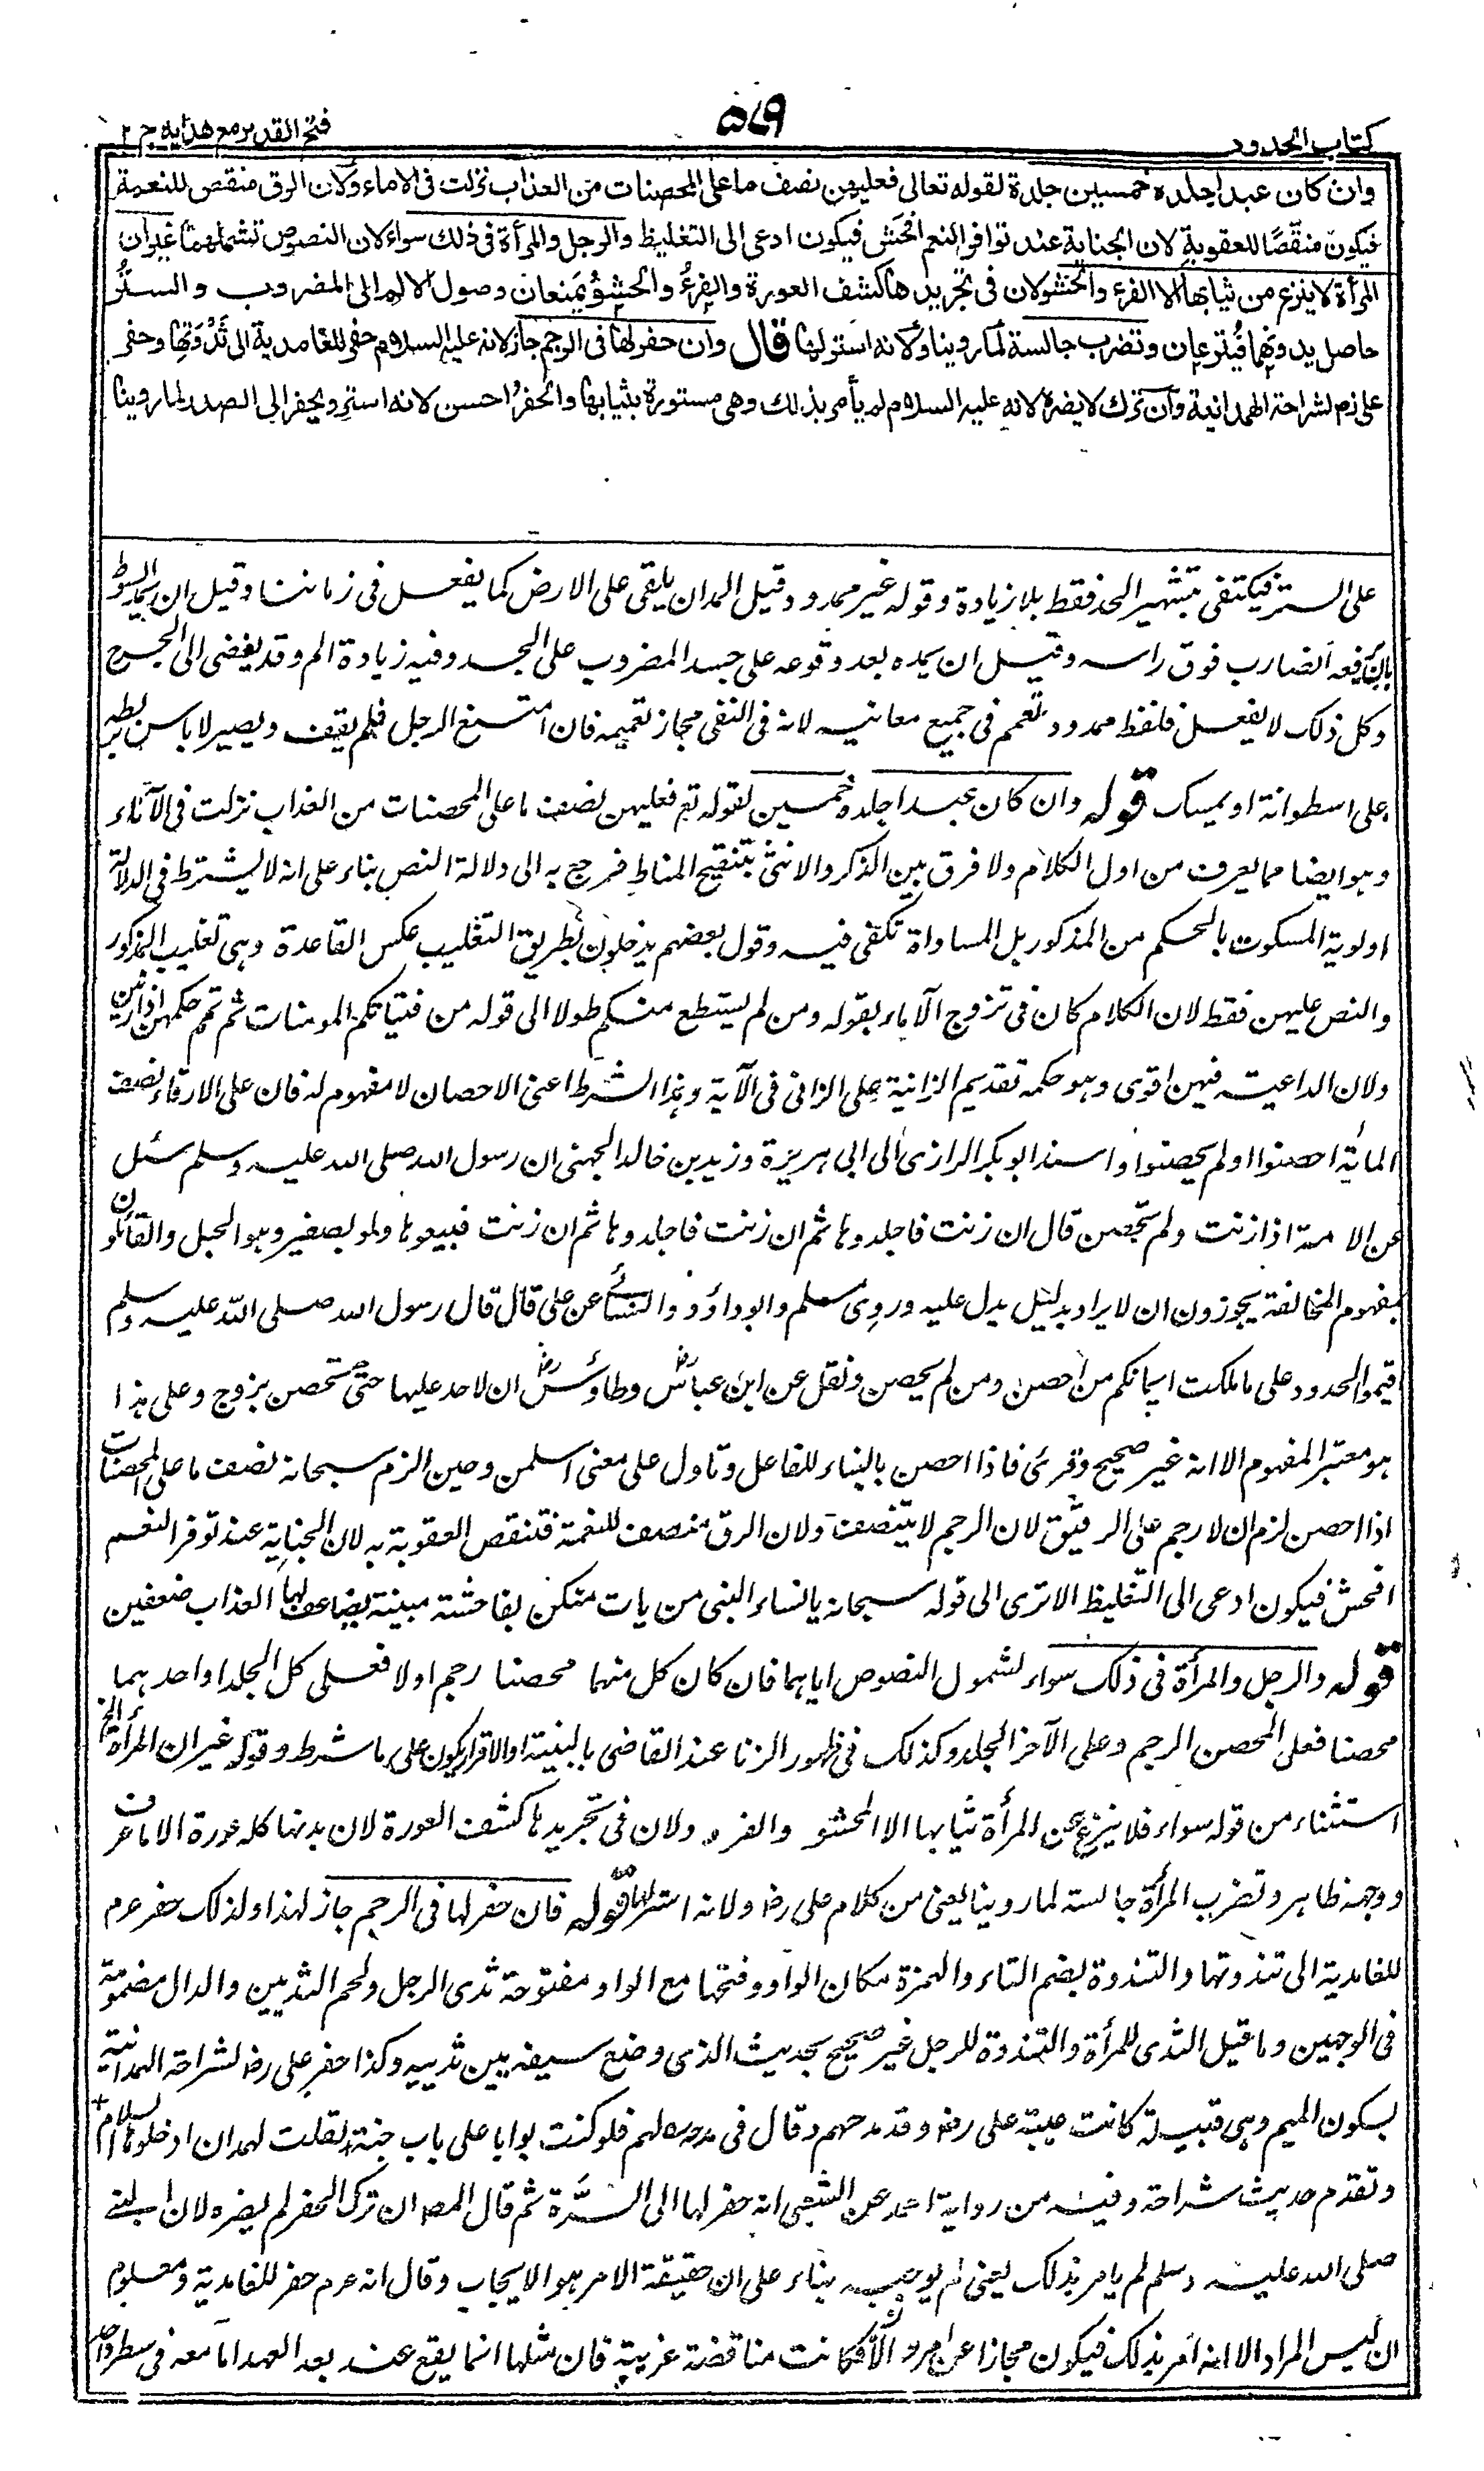 كتاب الحدود
٥٧٩
فتح القدير مع هدايه ج ٢
وان كان عبدا جلده خمسين جلدة لقوله تعالى فعليهن نصف ما على المحصنات من العذاب نزلت فى الاماء ولان الرق منقص للنعمة
فيكون منقصا للعقوبة لان الجناية عند توافر النعم افحش فيكون ادعى الى التغليظ والرجل والمرأة فى ذلك سواء لان النصوص تشملهما غير ان
المرأة لا ينزع من ثيابها الا الفرء والحشو لان فى تجريدها كشف العورة والفرء والحشو يمنعان وصول الالم الى المضروب والستر
حاصل بدونهما فينزعان وتضرب جالسة لما روينا ولانه استر لها قال وان حفر لها فى الرجم جاز لانه عليه السلام حفر للغامدية الى ثندوتها وحفر
على رم لشراحة الهمدانية وان ترك لا يضره لانه عليه السلام لم يأمر بذلك وهى مستورة بثيابها والحفر احسن لانه استر ويحفر الى الصدر لما روينا
على الستر فيكتفى بتشهير الحد فقط بلا زيادة وقوله غير ممدود وقيل المد ان يلقى على الارض كما يفعل فى زماننا وقيل ان يمد السوط
بان يرفعه الضارب فوق راسه وقيل ان يمده بعد وقوعه على جسد المضروب على الجسد وفيه زيادة الم وقد يفضى الى الجرح
وكل ذلك لا يفعل فلفظ ممدود تعمم فى جميع معانيه لانه فى النفى مجاز تعميمه فان امتنع الرجل فلم يقف ويصير لا باس بربطه
على اسطوانة او يمسك قوله وان كان عبدا جلده خمسين لقوله تع فعليهن نصف ما على المحصنات من العذاب نزلت فى الآماء
وهو ايضا مما يعرف من اول الكلام ولا فرق بين الذكر والانثى بتنقيح المناط فرجع به الى دلالة النص بناء على انه لا يشترط فى الدلالة
اولوية المسكوت بالحكم من المذكور بل المساواة تكفى فيه وقول بعضهم يدخلون بطريق التغليب عكس القاعدة وهى تغليب الذكور
والنص عليهن فقط لان الكلام كان فى تزوج الآماء بقوله ومن لم يستطع منكم طولا الى قوله من فتياتكم المومنات ثم تمم حكمهن اذا زنين
ولان الداعية فيهن اقوى وهو حكمه تقديم الزانية على الزانى فى الآية وهذا الشرط اعنى الاحصان لا مفهوم له فان على الارقاء نصف
المائة احصنوا او لم يحصنوا واسند ابو بكر الرازى الى ابى هريرة وزيد بن خالد الجهنى ان رسول الله صلى الله عليه وسلم سئل
عن الامة اذا زنت ولم تحصن قال ان زنت فاجلدوها ثم ان زنت فاجلدوها ثم ان زنت فبيعوها ولو بصفير وهو الحبل والقائلون
بمفهوم المخالفة يجوزون ان لا يراد بدليل يدل عليه وروى مسلم وابو داؤد والنسائى عن على قال قال رسول الله صلى الله عليه وسلم
اقيموا الحدود على ما ملكت ايمانكم من احصن ومن لم يحصن ونقل عن ابن عباس رض وطاوس رض ان لا حد عليها حتى تحصن بزوج وعلى هذا
هو معتبر المفهوم الا انه غير صحيح وقرئ فاذا احصن بالبناء للفاعل وتاول على معنى اسلمن وحين الزم سبحانه نصف ما على المحصنات
اذا احصن لزم ان لا رجم على الرقيق لان الرجم لا يتنصف ولان الرق منصف للنعمة فتنقص العقوبة به لان الجناية عند توفر النعم
افحش فيكون ادعى الى التغليظ الا ترى الى قوله سبحانه يا نساء النبى من يات منكن بفاحشة مبينة يضاعف لها العذاب ضعفين
قوله والرجل والمرأة فى ذلك سواء لشمول النصوص اياهما فان كان كل منهما محصنا رجم اولا فعلى كل الجلد او احدهما
محصنا فعلى المحصن الرجم وعلى الآخر الجلد وكذلك فى ظهور الزنا عند القاضى بالبينة او الاقرار يكون على ما شرط وقوله غير ان المرأة الخ
استثناء من قوله سواء فلا ينزع عن المرأة ثيابها الا الحشو والفرو ولان فى تجريدها كشف العورة لان بدنها كله عورة الا ما عرف
ووجهه ظاهر وتضرب المرأة جالسة لما روينا يعنى من كلام على رض ولانه استر لها قوله فان حفر لها فى الرجم جاز لهذا ولذلك حفر عم
للغامدية الى ثندوتها والثندوة بضم الثاء والهمزة مكان الواو وفتحها مع الواو مفتوحة ثدى الرجل ولحم الثديين والدال مضمومة
فى الوجهين وما قيل الثدى للمرأة والثندوة للرجل غير صحيح بحديث الذى وضع سيفه بين ثدييه وكذا حفر على رض لشراحة الهمدانية
بسكون الميم وهى قبيلة كانت عيبة على رض وقد مدحهم وقال فى مدحه لهم فلو كنت بوابا على باب جنة لقلت لهمدان ادخلوا بسلام
وتقدم حديث شراحة وفيه من رواية احمد عن الشعبى انه حفر لها الى السرة ثم قال المص ان ترك الحفر لم يضره لان النبى
صلى الله عليه وسلم لم يامر بذلك يعنى لم يوجبه بناء على ان حقيقة الامر هو الايجاب وقال انه عم حفر للغامدية ومعلوم
ان ليس المراد الا انه امر بذلك فيكون مجازا عن امر والا كانت مناقضة غريبة فان مثلها انما يقع عند بعد العهد اما معه فى سطر واحد